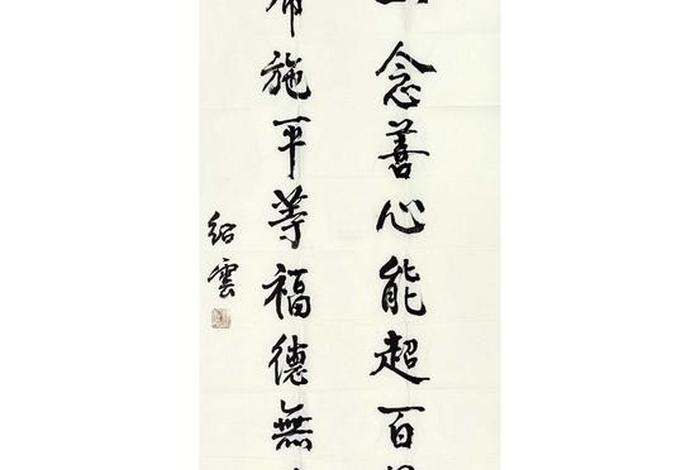 念善心能超百
布施平等福德無
紹雲